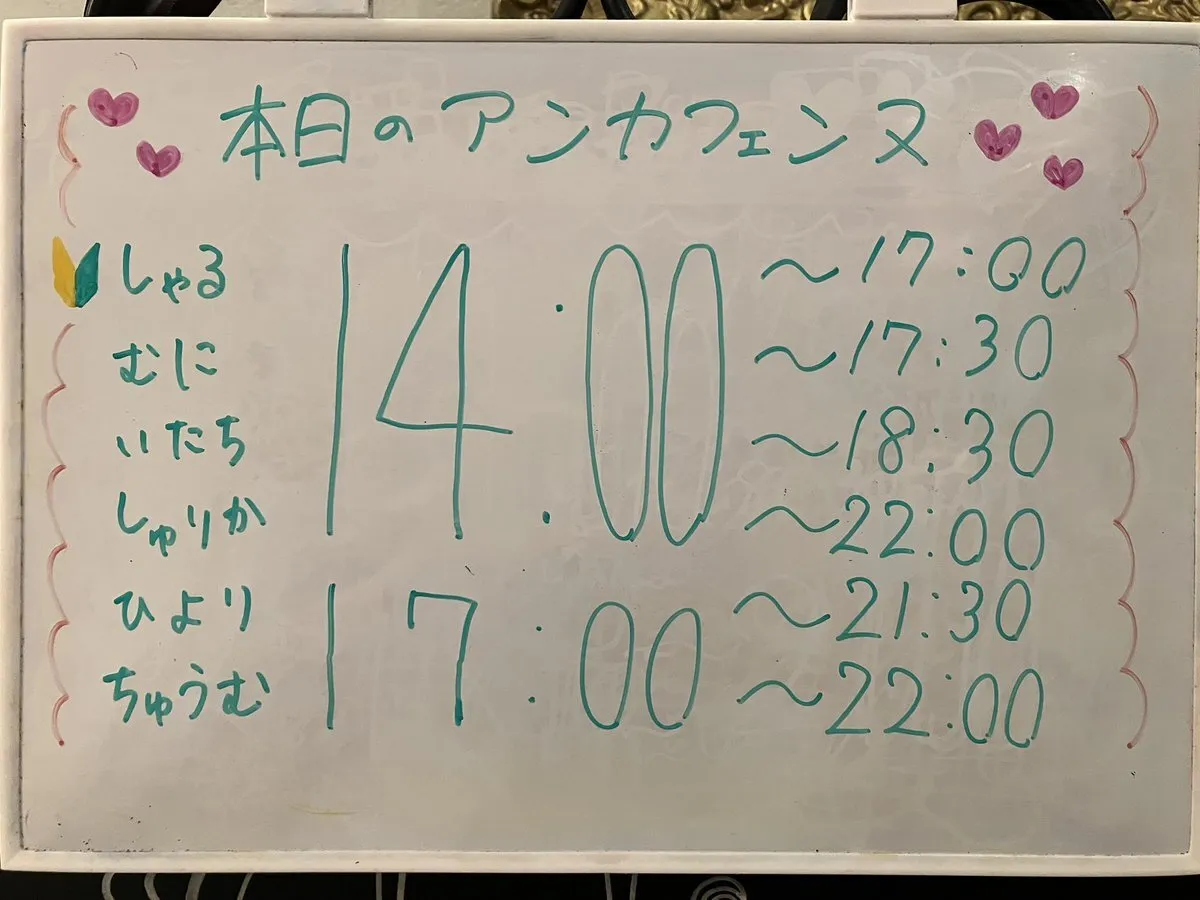 本日のアンカフェンヌ
しゃる 14:00 ~17:00
むに ~17:30
いたち ~18:30
しゅりか ~22:00
ひより 17:00 ~21:30
ちゅうむ ~22:00